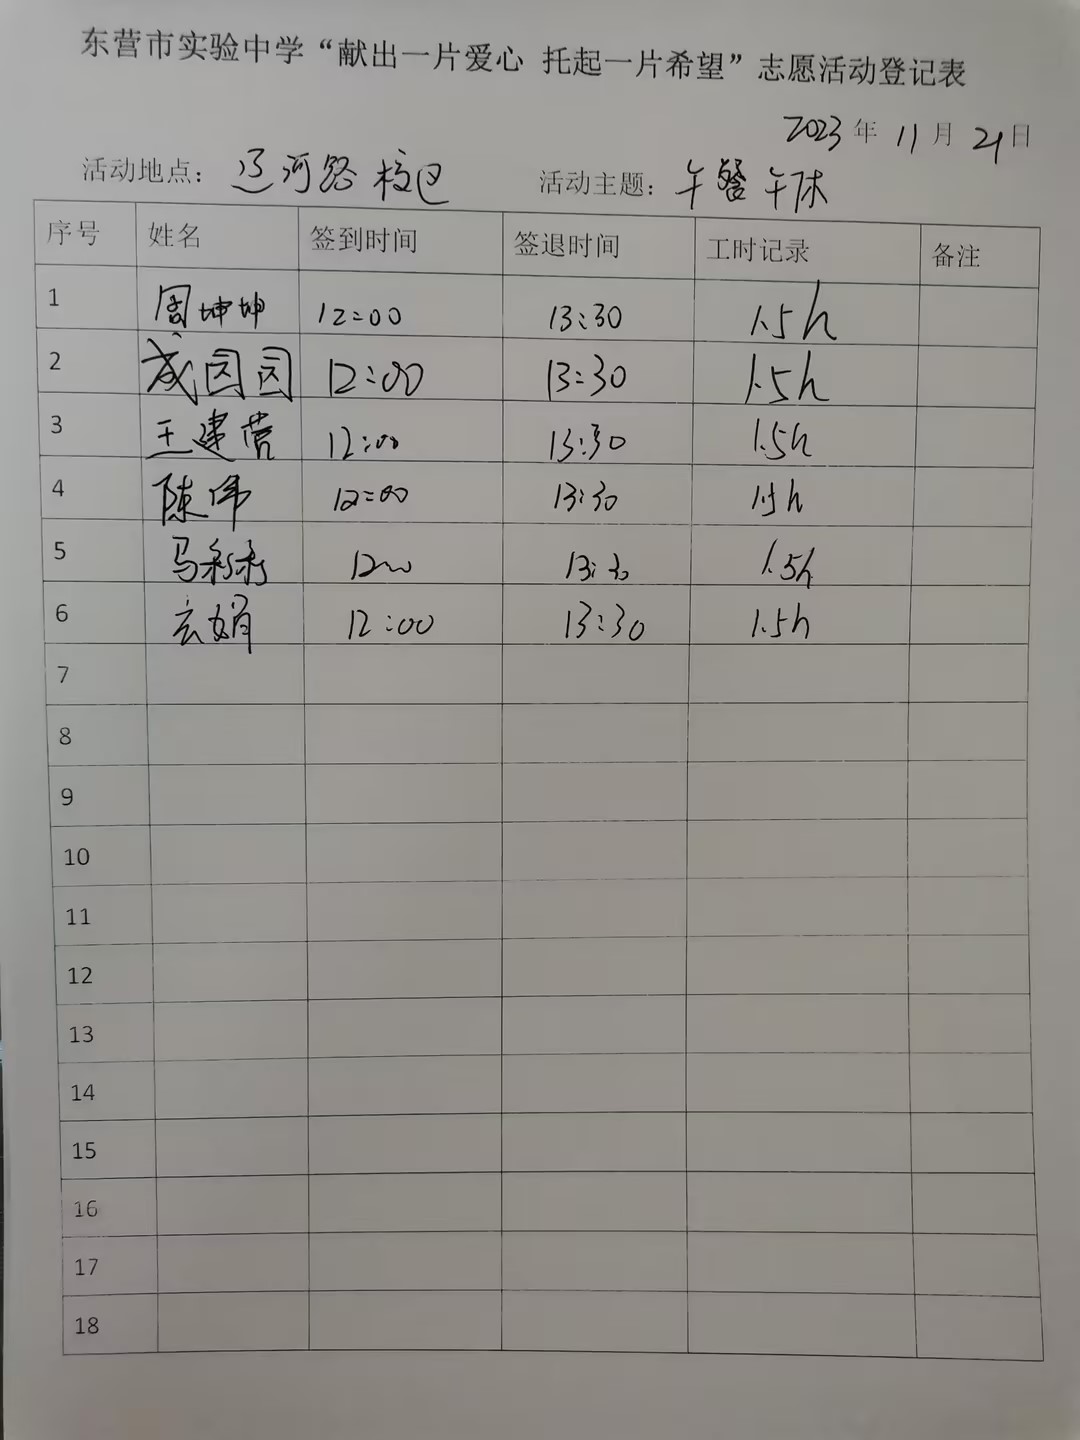 东营市实验中学“献出一片爱心 托起一片希望”志愿活动登记表
2023 年 11 月 21 日
活动地点：辽河路校区 活动主题：午餐午休
序号 姓名 签到时间 签退时间 工时记录 备注
1 周坤坤 12:00 13:30 1.5h
2 成园园 12:00 13:30 1.5h
3 王建营 12:00 13:30 1.5h
4 陈伟 12:00 13:30 1.5h
5 马利利 12:00 13:30 1.5h
6 玄娟 12:00 13:30 1.5h
7
8
9
10
11
12
13
14
15
16
17
18